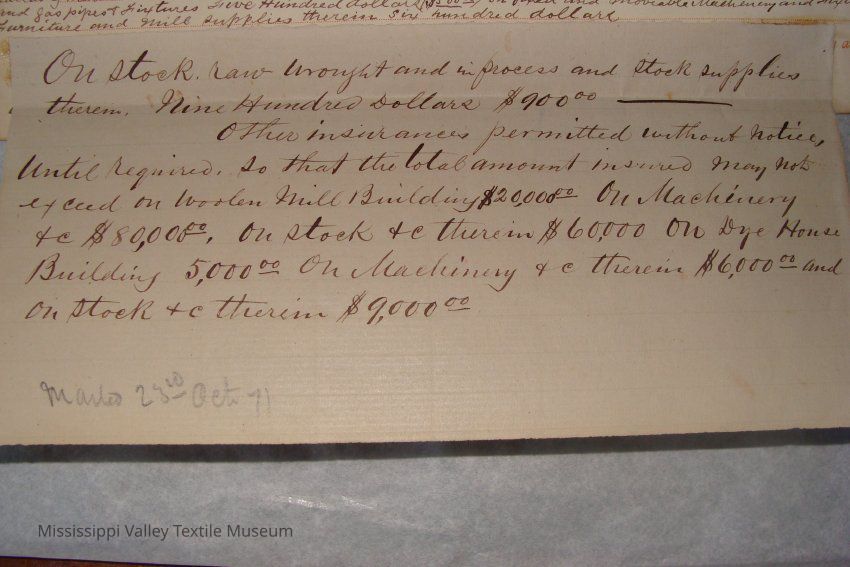 and gas pipes & Fixtures Five Hundred dollars ($500.00) on fixed and moveable Machinery and
Furniture and Mill Supplies therein Six hundred dollars
On stock. raw wrought and in process and stock supplies
therein. Nine Hundred Dollars $900.00
Other insurances permitted without notice,
Until required. so that the total amount insured may not
exceed on Woolen Mill Building $20,000.00 On Machinery
& c $80,000.00. On stock & c therein $60,000 On Dye House
Building 5,000.00 On Machinery & c therein $6,000.00 and
on stock & c therein $9,000.00
23rd Oct 71
Mississippi Valley Textile Museum